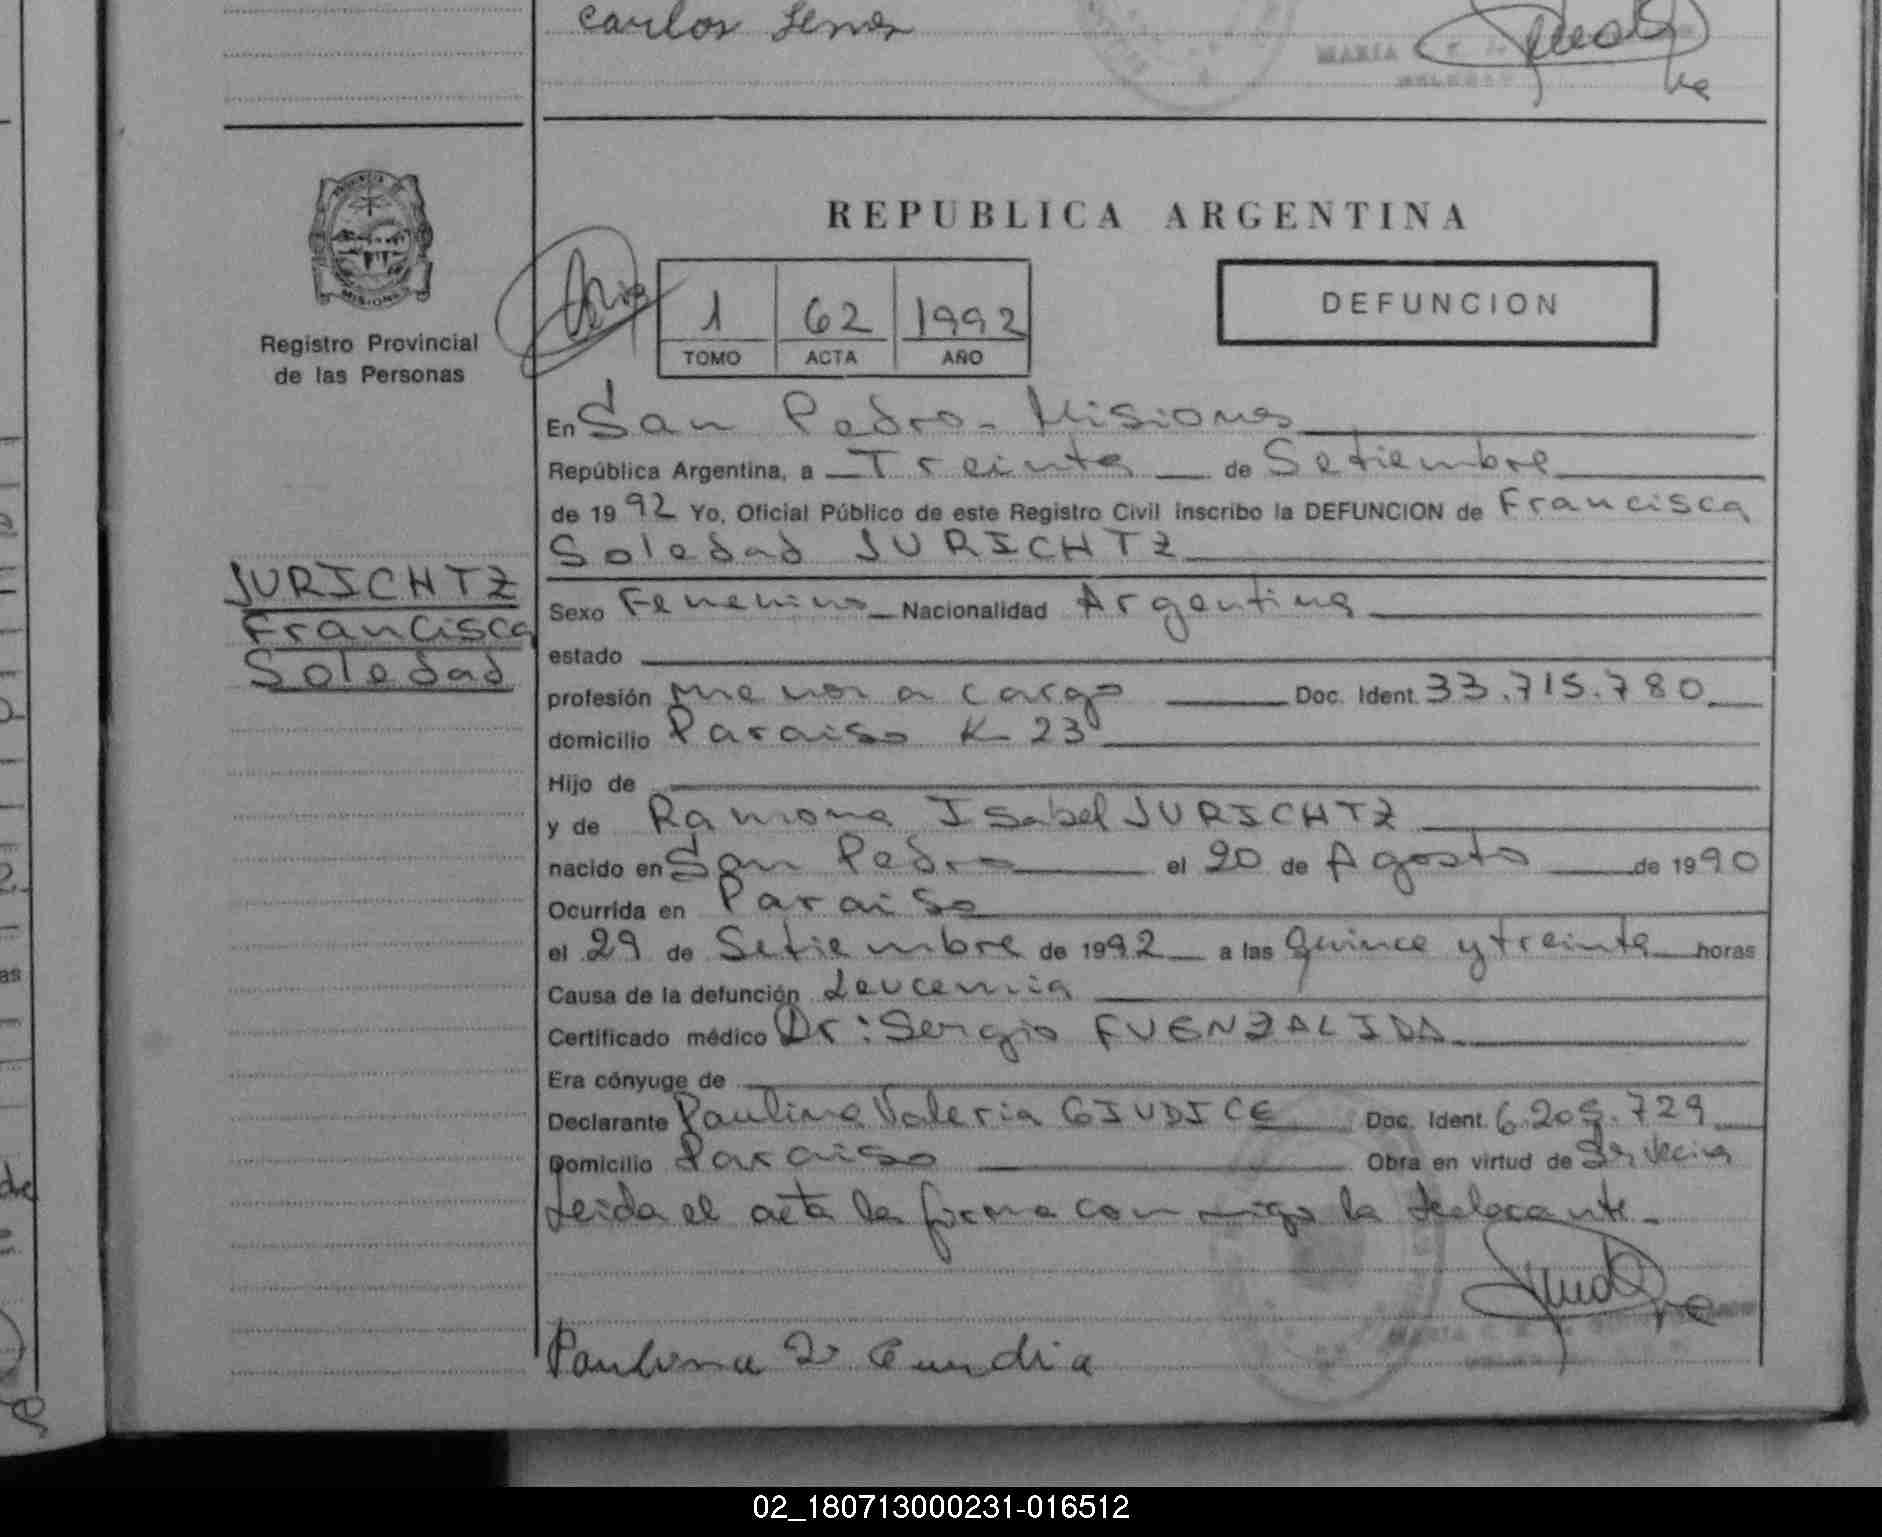 carlos
MARIA
REPUBLICA ARGENTINA
DEFUNCION
1 62 1992
TOMO ACTA AÑO
MISIONES
Registro Provincial
de las Personas
En San Pedro - Misiones
República Argentina, a Treinta de Setiembre
de 1992 Yo, Oficial Público de este Registro Civil inscribo la DEFUNCION de Francisca
Soledad JURICHTZ
JURICHTZ
Francisca
Soledad
Sexo Femenino Nacionalidad Argentina
estado
profesión menor a cargo Doc. Ident. 33.715.780
domicilio Paraiso K 23
Hijo de
y de Ramona Isabel JURICHTZ
nacido en San Pedro el 20 de Agosto de 1990
Ocurrida en Paraiso
el 29 de Setiembre de 1992 a las quince y treinta horas
Causa de la defunción Leucemia
Certificado médico Dr: Sergio FUENZALIDA
Era cónyuge de
Declarante Paulina Valeria GIUDICE Doc. Ident. 6.205.729
Domicilio Paraiso Obra en virtud de Ser Vecina
Leida el acta la firma con migo la declarante.
MARIA
02_180713000231-016512